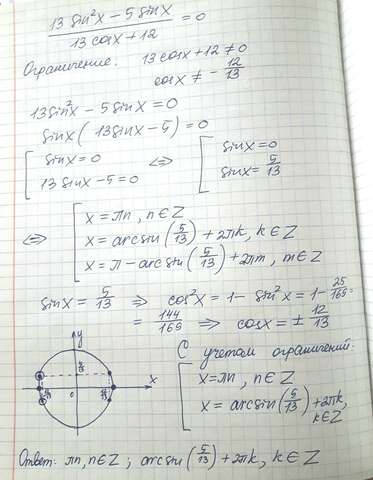 13 sin²x – 5 sinx / 13 cosx + 12 = 0
Ограничение: 13 cosx + 12 ≠ 0
cosx ≠ – 12/13
13 sin²x – 5 sinx = 0
sinx ( 13 sinx – 5 ) = 0
[ sinx = 0 <=> [ sinx = 0
13 sinx – 5 = 0 sinx = 5/13
<=> [ x = πn, n ∈ Z
x = arcsin(5/13) + 2πk, k ∈ Z
x = π – arcsin(5/13) + 2πm, m ∈ Z
sinx = 5/13 => cos²x = 1 – sin²x = 1 – 25/169 =
= 144/169 => cosx = ± 12/13
y
x
0
С учетом ограничений:
[ x = πn, n ∈ Z
x = arcsin(5/13) + 2πk,
k ∈ Z
Ответ: πn, n ∈ Z ; arcsin(5/13) + 2πk, k ∈ Z